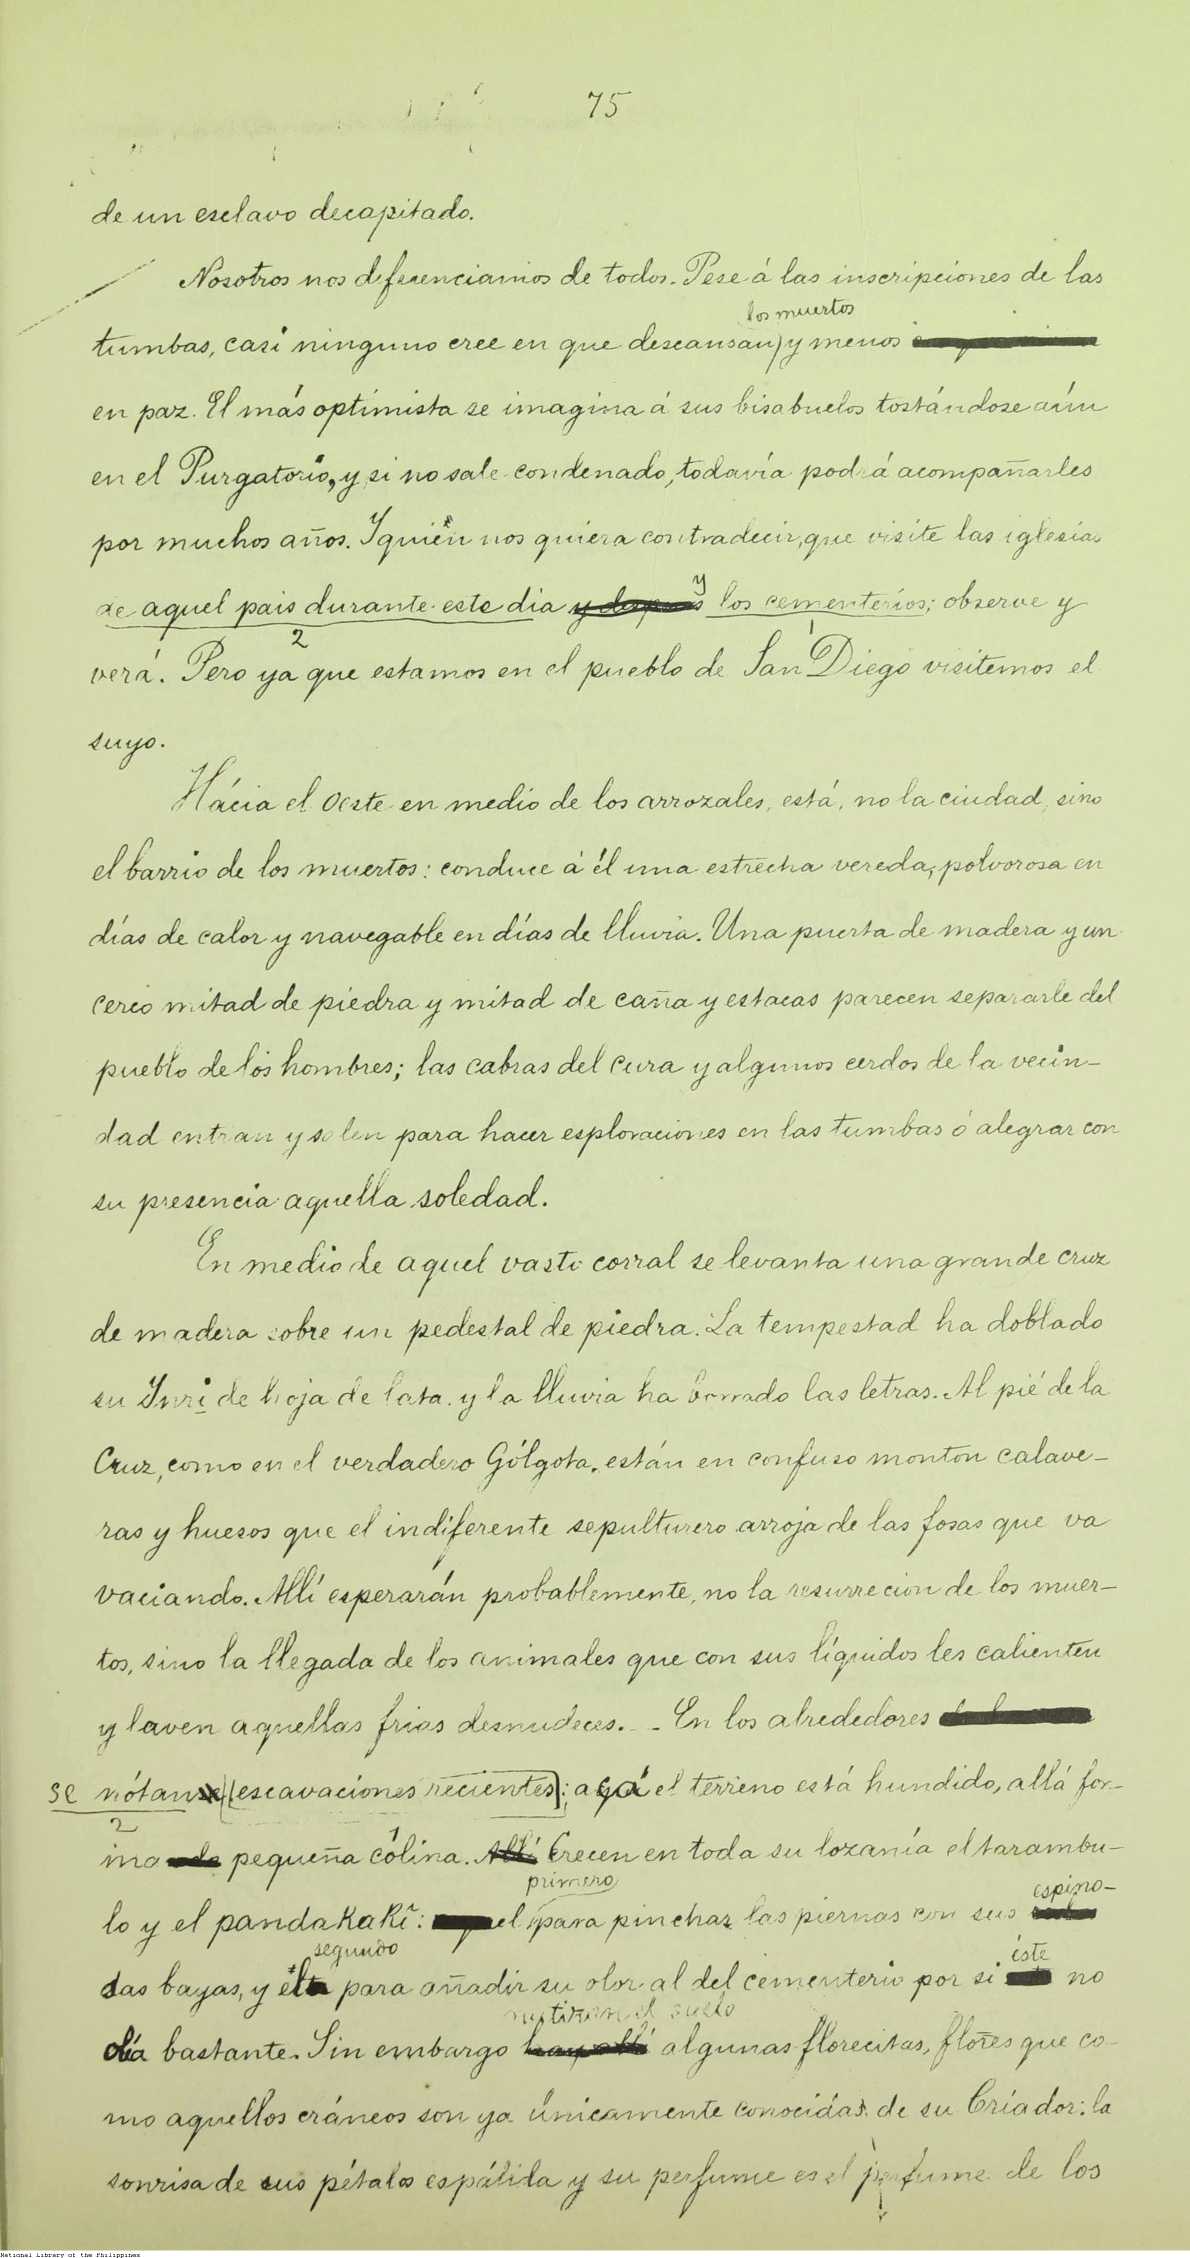 75
de un esclavo decapitado.
Nosotros nos diferenciamos de todos. Pese á las inscripciones de las
los muertos
tumbas, casi ninguno cree en que descansan, y menos
en paz. El más optimista se imagina á sus bisabuelos tostándose aún
en el Purgatorio, y si no sale condenado, todavía podrá acompañarles
por muchos años. Y quién nos quiera contradecir, que visite las iglesias
y
de aquel pais durante este dia los cementerios; observe y
2 1
verá. Pero ya que estamos en el pueblo de San Diego visitemos el
suyo.
Hácia el oeste en medio de los arrozales, está, no la ciudad, sino
el barrio de los muertos: conduce á él una estrecha vereda, polvorosa en
días de calor y navegable en días de lluvia. Una puerta de madera y un
cerco mitad de piedra y mitad de caña y estacas parecen separarle del
pueblo de los hombres; las cabras del cura y algunos cerdos de la vecin-
dad entran y salen para hacer esploraciones en las tumbas ó alegrar con
su presencia aquella soledad.
En medio de aquel vasto corral se levanta una grande cruz
de madera sobre un pedestal de piedra. La tempestad ha doblado
su Inri de hoja de lata, y la lluvia ha borrado las letras. Al pié de la
Cruz, como en el verdadero Gólgota, están en confuso monton calave-
ras y huesos que el indiferente sepulturero arroja de las fosas que va
vaciando. Allí esperarán probablemente, no la resurrecion de los muer-
tos, sino la llegada de los animales que con sus líquidos les calienten
y laven aquellas frias desnudeces. - En los alrededores
se nótanse [escavaciones recientes]; aquí el terreno está hundido, allá for-
2 1
ma pequeña colina. Allí Crecen en toda su lozanía el tarambu-
primero
espino-
lo y el pandakaki: el para pinchar las piernas con sus
segundo
éste
sas bayas, y él para añadir su olor al del cementerio por si no
matizan el suelo
olía bastante. Sin embargo hay allí algunas florecitas, flores que co-
mo aquellos cráneos son ya únicamente conocidas de su Criador: la
sonrisa de sus pétalos es pálida y su perfume es el perfume de los
National Library of the Philippines